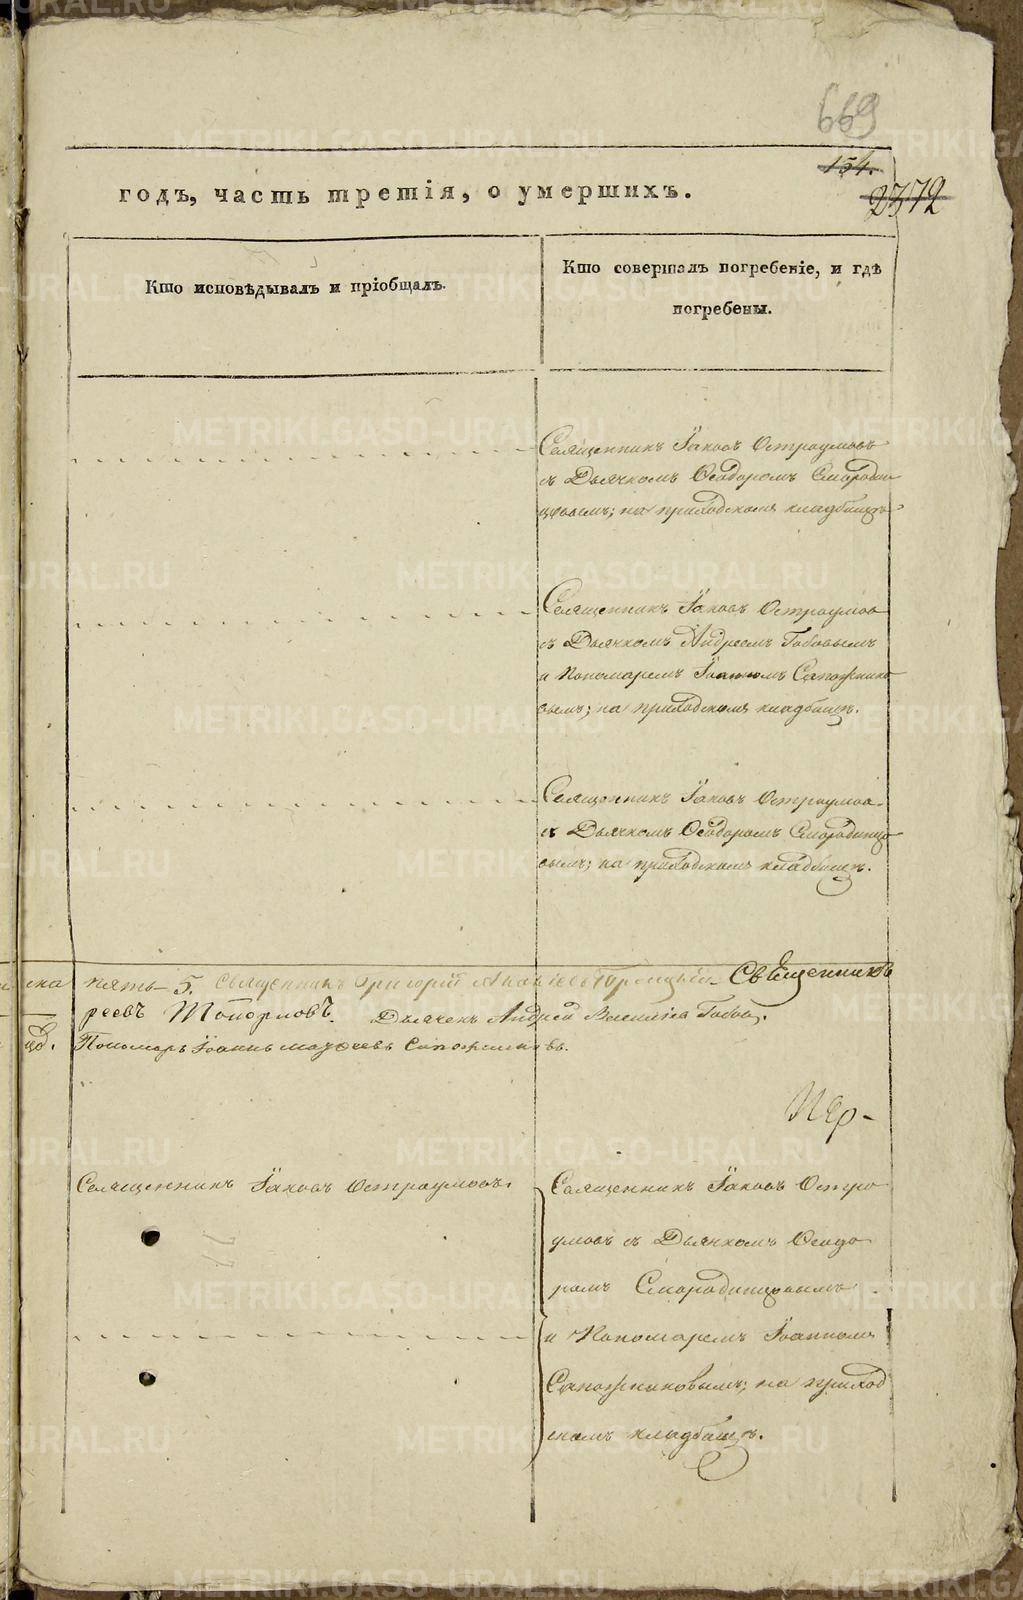 669
154.
2372
годъ, часть третія, о умершихъ.
Кто исповѣдывалъ и пріобщалъ.
Кто совершалъ погребеніе, и гдѣ
погребены.
Священникъ Іаковъ Остроумовъ
съ Дьячкомъ Ѳеодоромъ Смородин
цовымъ; на приходскомъ кладбищѣ
Священникъ Іаковъ Остроумов
съ Дьячкомъ Андреемъ Бабовымъ
и Пономаремъ Іоанномъ Сапожнико
вымъ; на приходскомъ кладбищѣ.
Священникъ Іаковъ Остроумов
съ Дьячкомъ Ѳеодоромъ Смородинцо
вымъ; на приходскомъ кладбищѣ.
пять 5. Священникъ Григорій Священникъ
реевъ Топорковъ. Дьячекъ Андрей Васильевъ
Пономарь Іоаннъ Сапожниковъ.
Пер-
Священникъ Іаковъ Остроумовъ.
Священникъ Іаковъ Остро
умовъ съ Дьячкомъ Ѳеодо
ромъ Смородинцовымъ
и Пономаремъ Іоанномъ
Сапожниковымъ; на приход
скомъ кладбищѣ.
METRIKI.GASO-URAL.RU